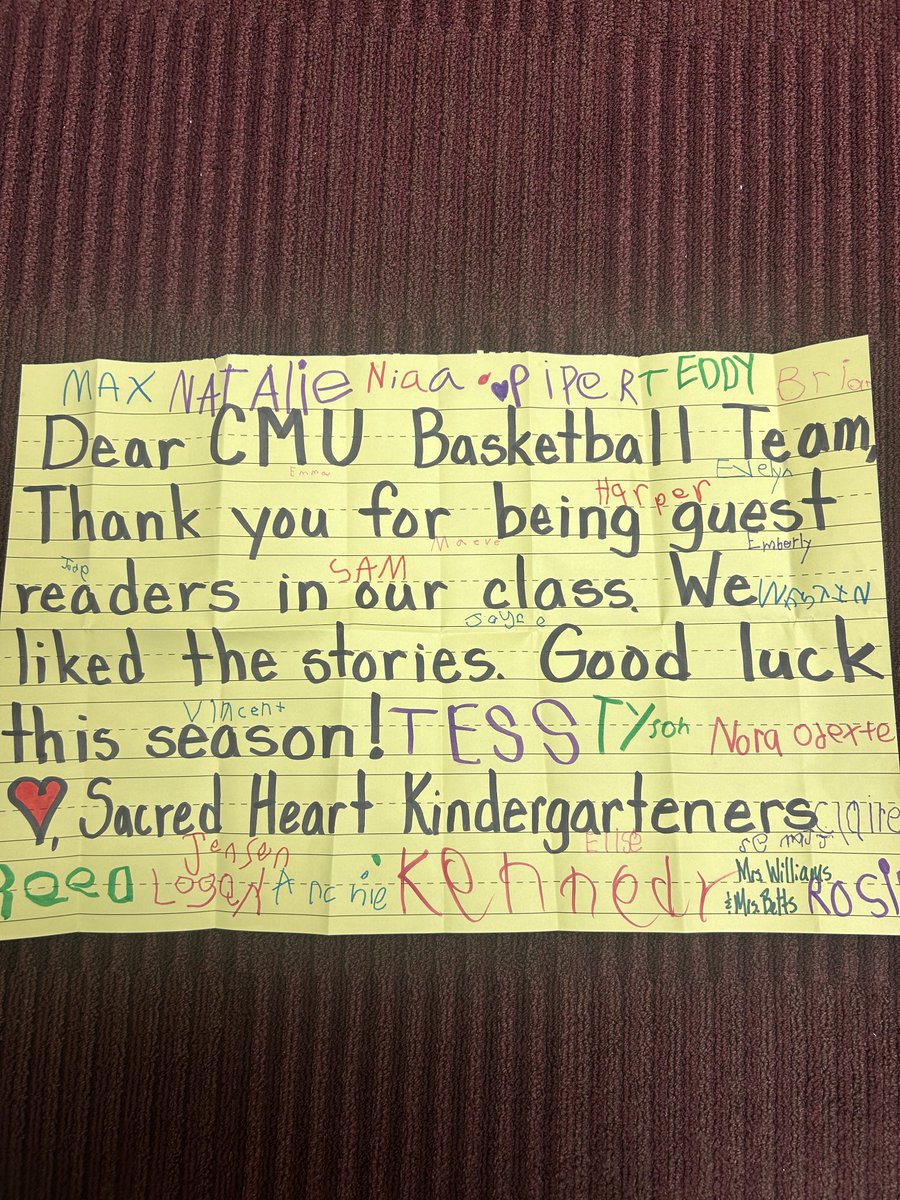 MAX NATALie Niaa PiPeR TEDDY Brian
Dear CMU Basketball Team,
Emma Evelyn
Thank you for being guest
Harper
Maeve Emberly
readers in our class. We
SAM
Jayce
liked the stories. Good luck
Vincent
this season! TESS Tyson Nora
Sacred Heart Kindergarteners Claire
Jensen Elise
Reed Logan Archie Kennedy Mrs. Williams
& Mrs. Betts